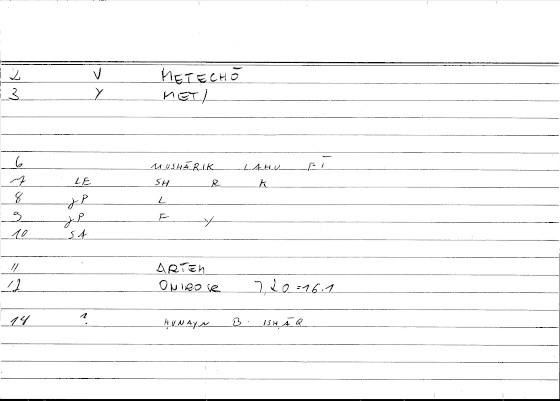 2 V METECHŌ
3 Y MET/
6 MUSHĀRIK LAHU FĪ
7 LE SH R K
8 jP L
9 jP F Y
10 SA
11 ARTEM
12 ONIROCR 7,20=16.1
14 1. HUNAYN B. ISHĀQ